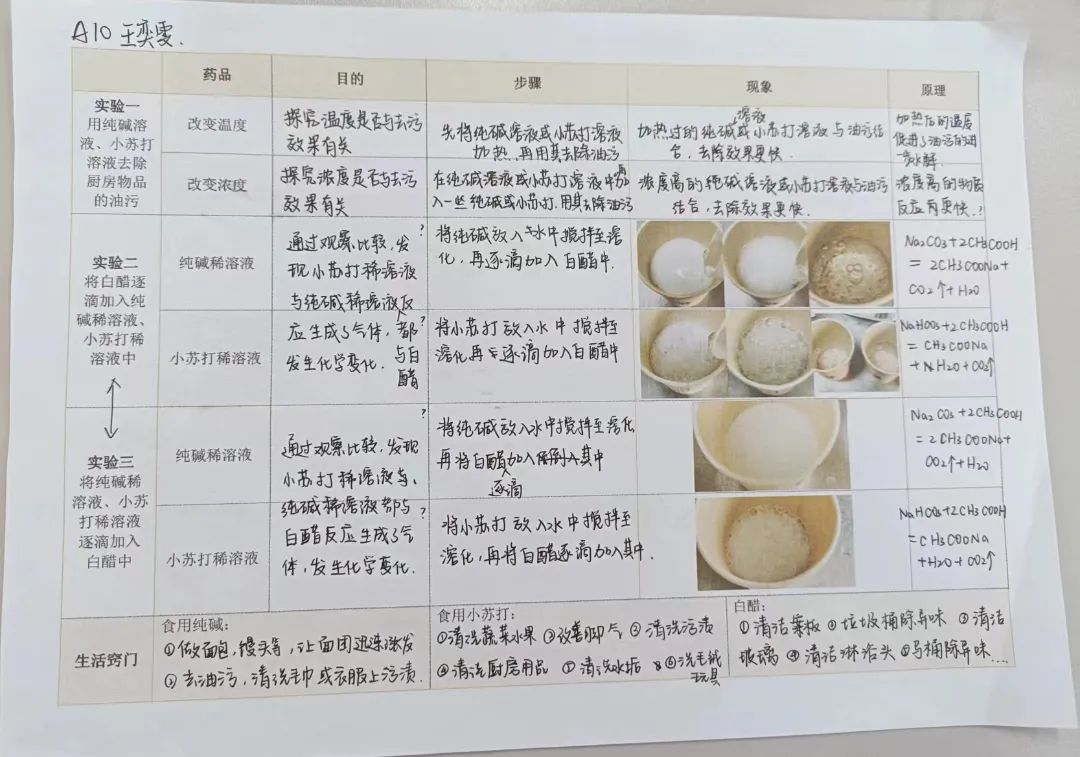 A10 王奕雯.
药品 目的 步骤 现象 原理
实验一
用纯碱溶
液、小苏打
溶液去除
厨房物品
的油污
改变温度
探究温度是否与去污
效果有关
先将纯碱溶液或小苏打溶液
加热,再用其去除油污
溶液
加热过的纯碱或小苏打溶液与油污结
合,去除效果更快.
加热后的温度
促进了油污的进
一步水解.
改变浓度
探究浓度是否与去污
效果有关
在纯碱溶液或小苏打溶液中再加
入一些纯碱或小苏打.用其去除油污
浓度高的纯碱溶液或小苏打溶液与油污
结合,去除效果更快.
浓度高的物质
反应有更快.?
实验二
将白醋逐
滴加入纯
碱稀溶液、
小苏打稀
溶液中
纯碱稀溶液
小苏打稀溶液
通过观察比较,发?
现小苏打稀溶液
与纯碱稀溶液反
应生成了气体,都?
发生化学变化. 与白
醋
将纯碱放入水中搅拌至溶
化,再逐滴加入白醋中.
Na2CO3+2CH3COOH
= 2CH3COONa+
CO2↑+H2O
将小苏打放入水中搅拌至
溶化再逐滴加入白醋中
NaHCO3+2CH3COOH
= CH3COONa
+H2O+CO2↑
实验三
将纯碱稀
溶液、小苏
打稀溶液
逐滴加入
白醋中
纯碱稀溶液
小苏打稀溶液
?
通过观察比较,发现
小苏打稀溶液与
纯碱稀溶液都与?
白醋反应生成了气
体,发生化学变化.
将纯碱放入水中搅拌至溶化
再将白醋加入倒入其中
逐滴
Na2CO3+2CH3COOH
=2CH3COONa+
CO2↑+H2O
将小苏打放入水中搅拌至
溶化,再将白醋逐滴加入其中.
NaHCO3+2CH3COOH
=CH3COONa
+H2O+CO2↑
生活窍门
食用纯碱:
①做面包,馒头等,让面团迅速激发
②去油污,清洗毛巾或衣服上污渍.
食用小苏打:
①清洗蔬菜水果 ②改善脚气 ③清洗污渍
④清洗厨房用品 ⑤清洗水垢 ⑥洗毛绒
玩具
白醋:
①清洁案板 ②垃圾桶除异味 ③清洁
玻璃 ④清洁淋浴头 ⑤马桶除异味....